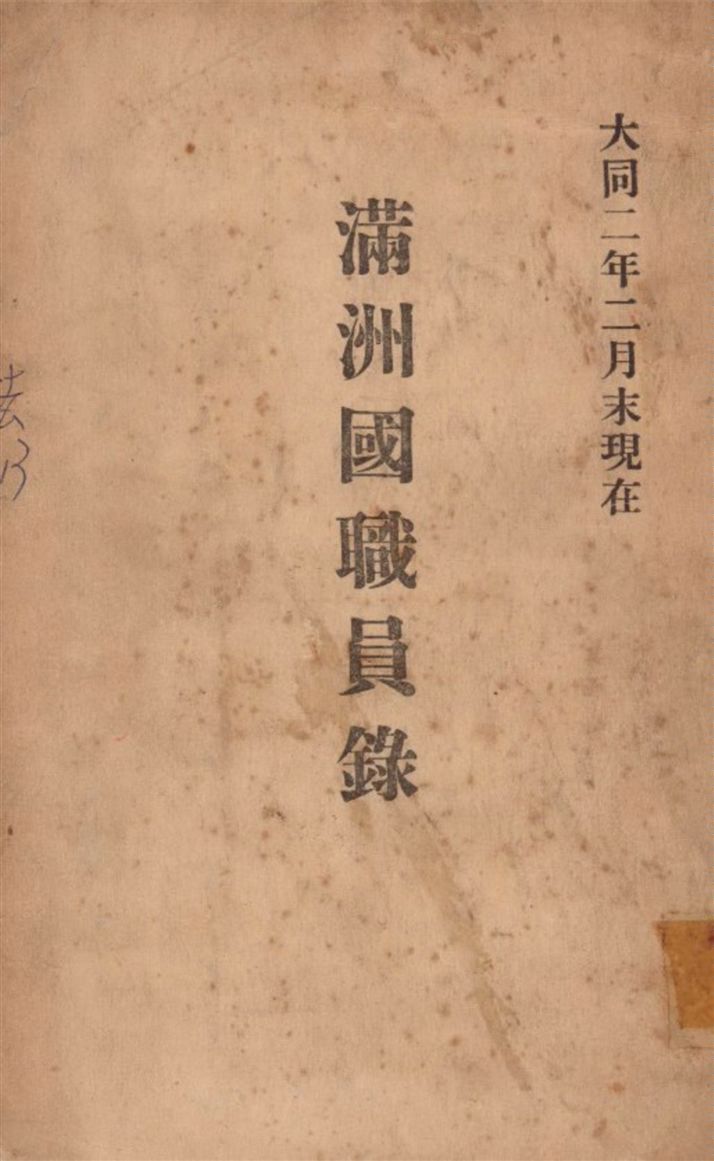 大同二年二月末現在
滿洲國職員錄